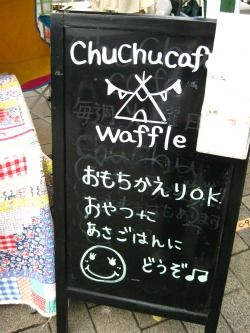 ChuChucafe
waffle
おもちかえりOK
おやつに
あさごはんに
どうぞ♫